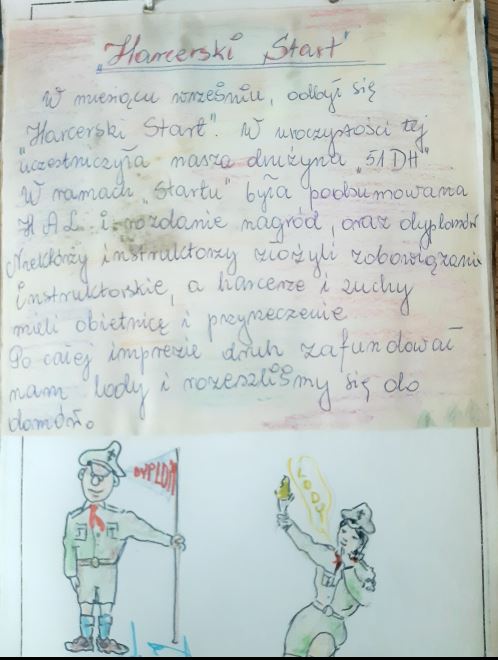 "Harcerski „Start"
W miesiącu wrześniu, odbył się
"Harcerski Start". W uroczystości tej
uczestniczyła nasza drużyna „51DH"
W ramach „Startu" była podsumowana
HAL i rozdanie nagród, oraz dyplomów
Niektórzy instruktorzy złożyli zobowiązanie
instruktorskie, a harcerze i zuchy
mieli obietnicę i przyrzeczenie
Po całej imprezie druh zafundował
nam lody i rozeszliśmy się do
domów.
DYPLOM
LODY